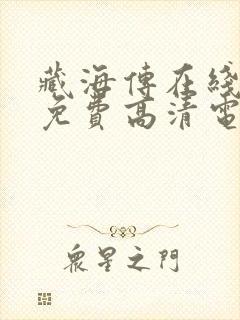 藏海傳在綫
免費高清電
衆星之門